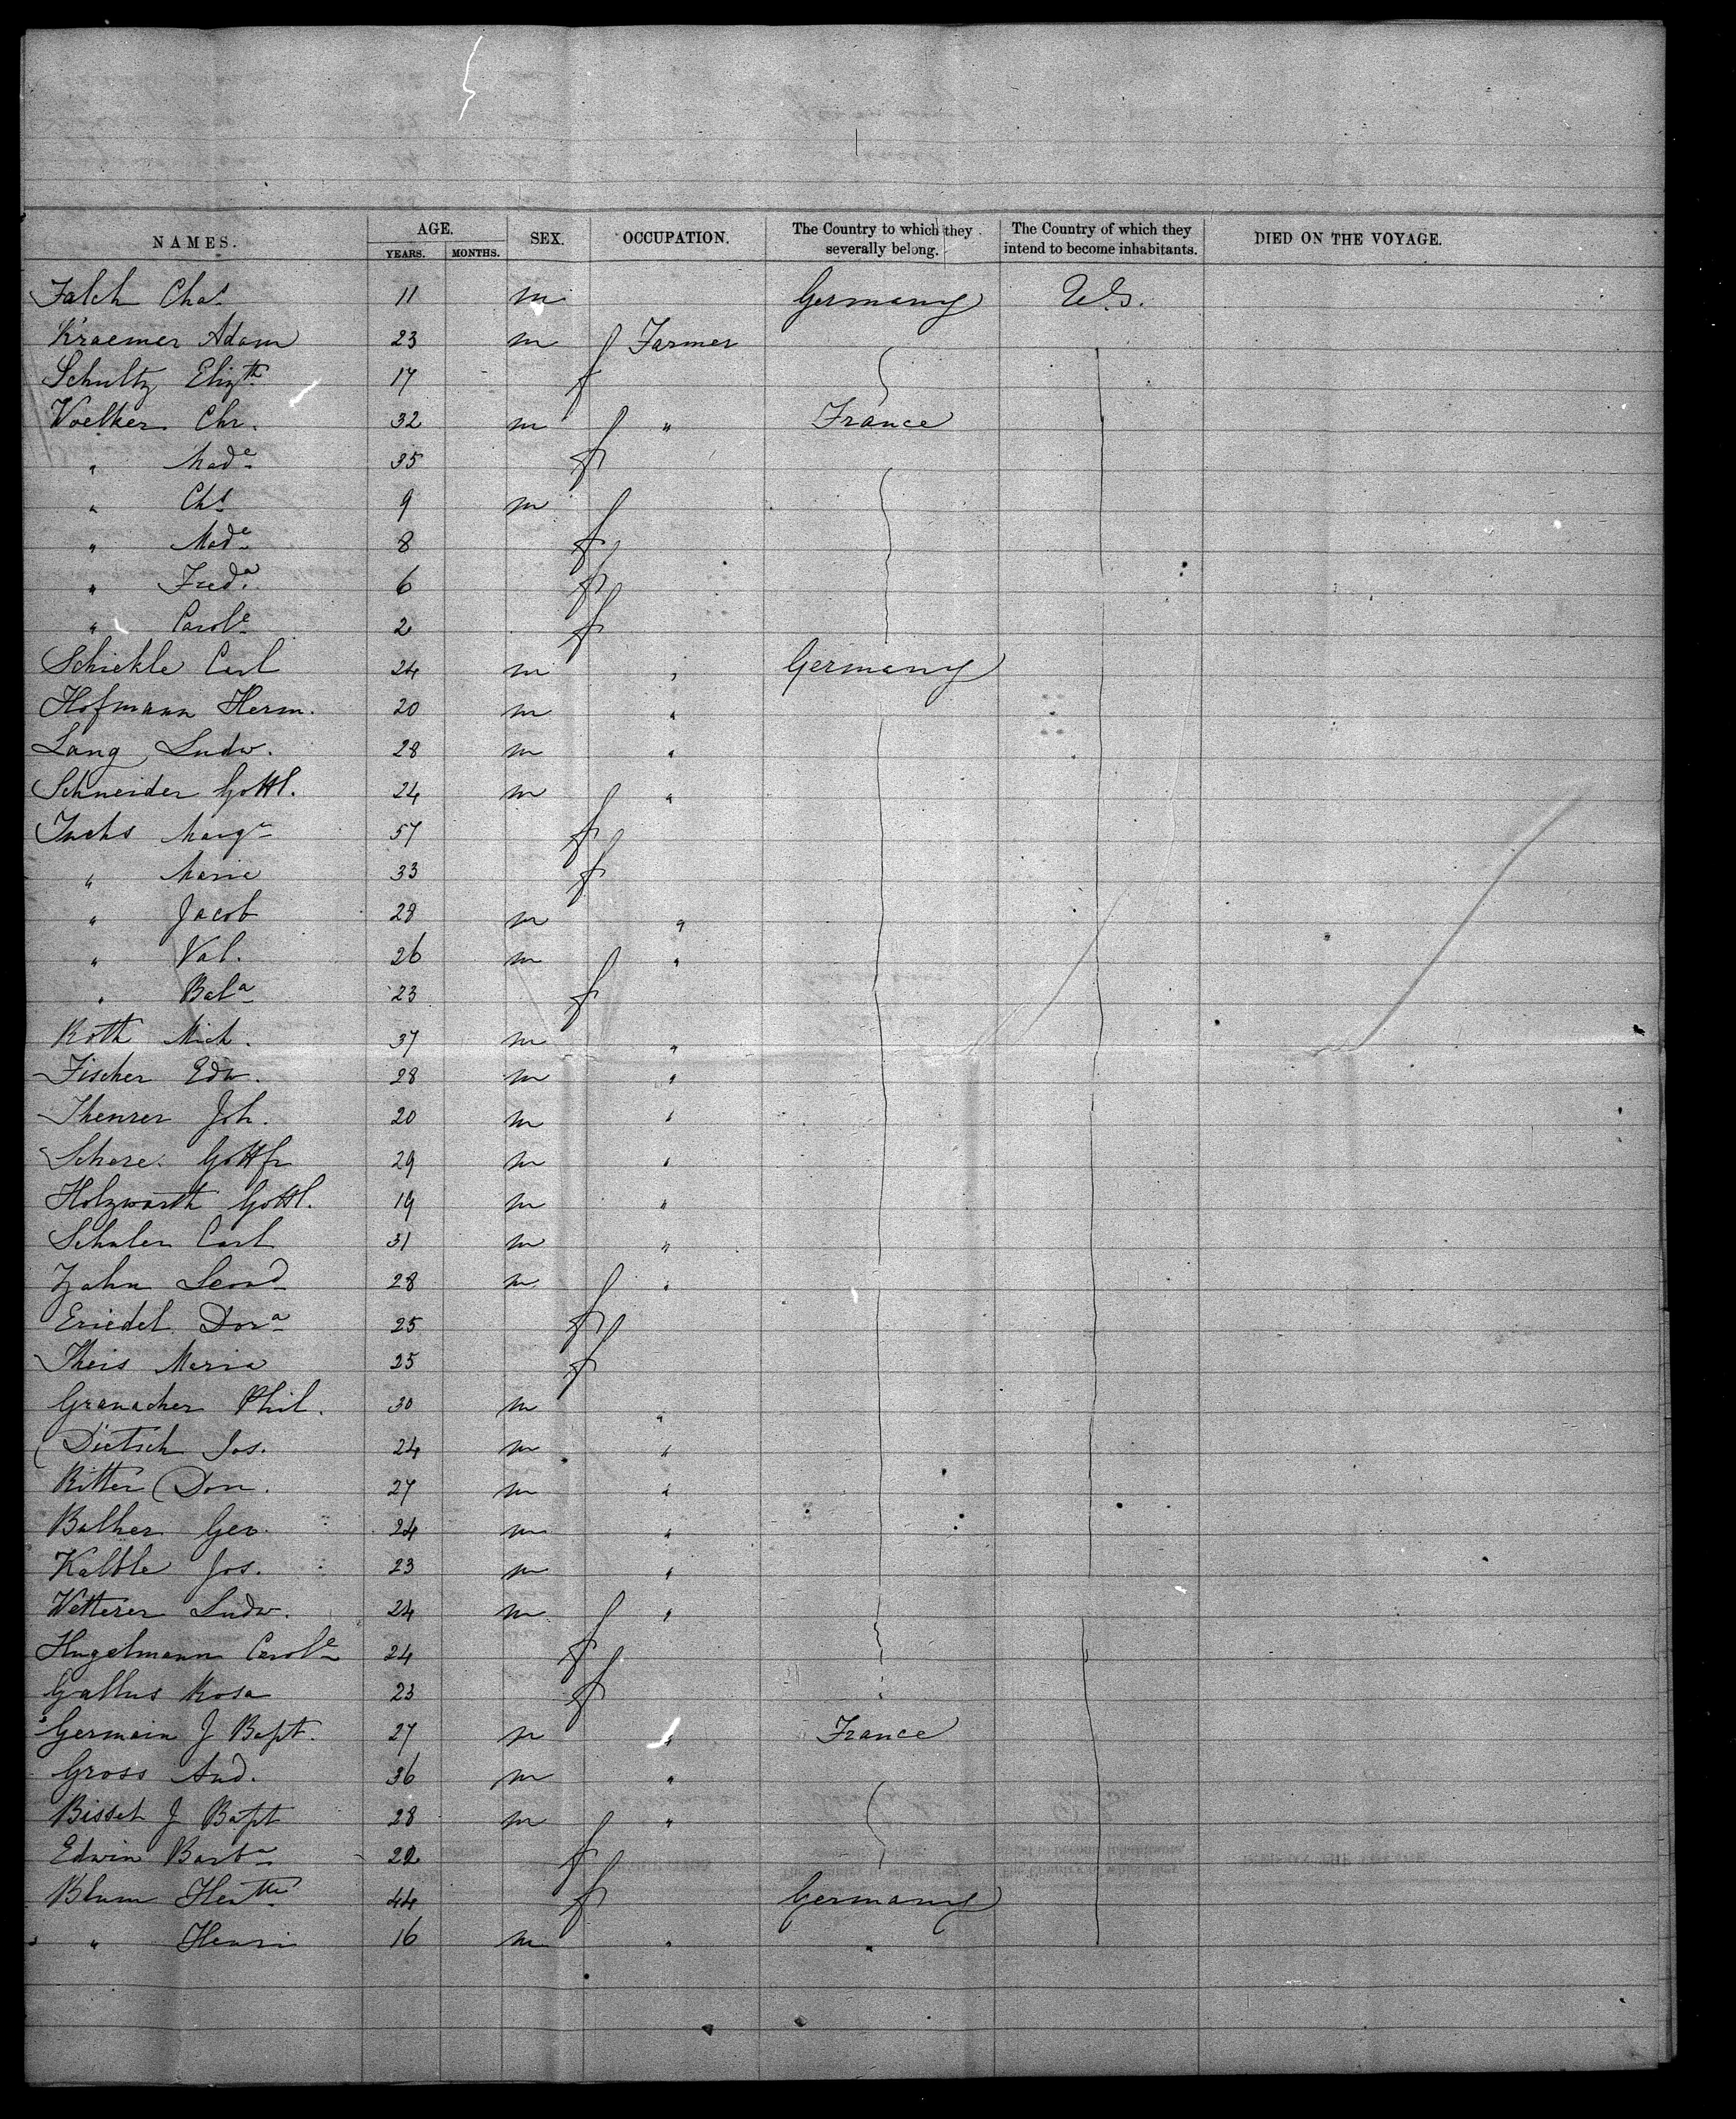 NAMES. AGE. SEX. OCCUPATION. The Country to which they severally belong. The Country of which they intend to become inhabitants. DIED ON THE VOYAGE.
YEARS. MONTHS.
Falch Chas 11 m Germany U.S.
Kraemer Adam 23 m Farmer
Schultz Elizth 17 f
Voelker Chr. 32 m " France
" Made 35 f
" Chs 9 m
" Made 8 f
" Freda 6 f
" Carole 2 f
Schickle Carl 24 m " Germany
Hofmann Herm. 20 m "
Lang Ludw. 28 m "
Schneider Gottl. 24 m "
Fuchs Marga 57 f
" Marie 33 f
" Jacob 28 m "
" Val. 26 m "
" Bala 23 f
Roth Mich. 37 m "
Fischer Edw. 28 m "
Theurer Joh. 20 m "
Schere. Gottfr 29 m "
Holzwarth Gottl. 19 m "
Schuler Carl 31 m "
Zahn Leond 28 m "
Eriedel Dora 25 f
Theis Maria 25 f
Granacher Phil. 30 m "
Dietsch Jos. 24 m "
Ritter Dom. 27 m "
Balher Geo. 24 m "
Kalble Jos. 23 m "
Wetterer Ludw. 24 m "
Hugelmann Carole 24 f
Gallus Rosa 23 f
Germain J Bapt. 27 m " France
Gross And. 36 m "
Bisset J Bapt 28 m "
Edwin Barba 22 f
Blum Hentte 44 f Germany
" Henri 16 m " "